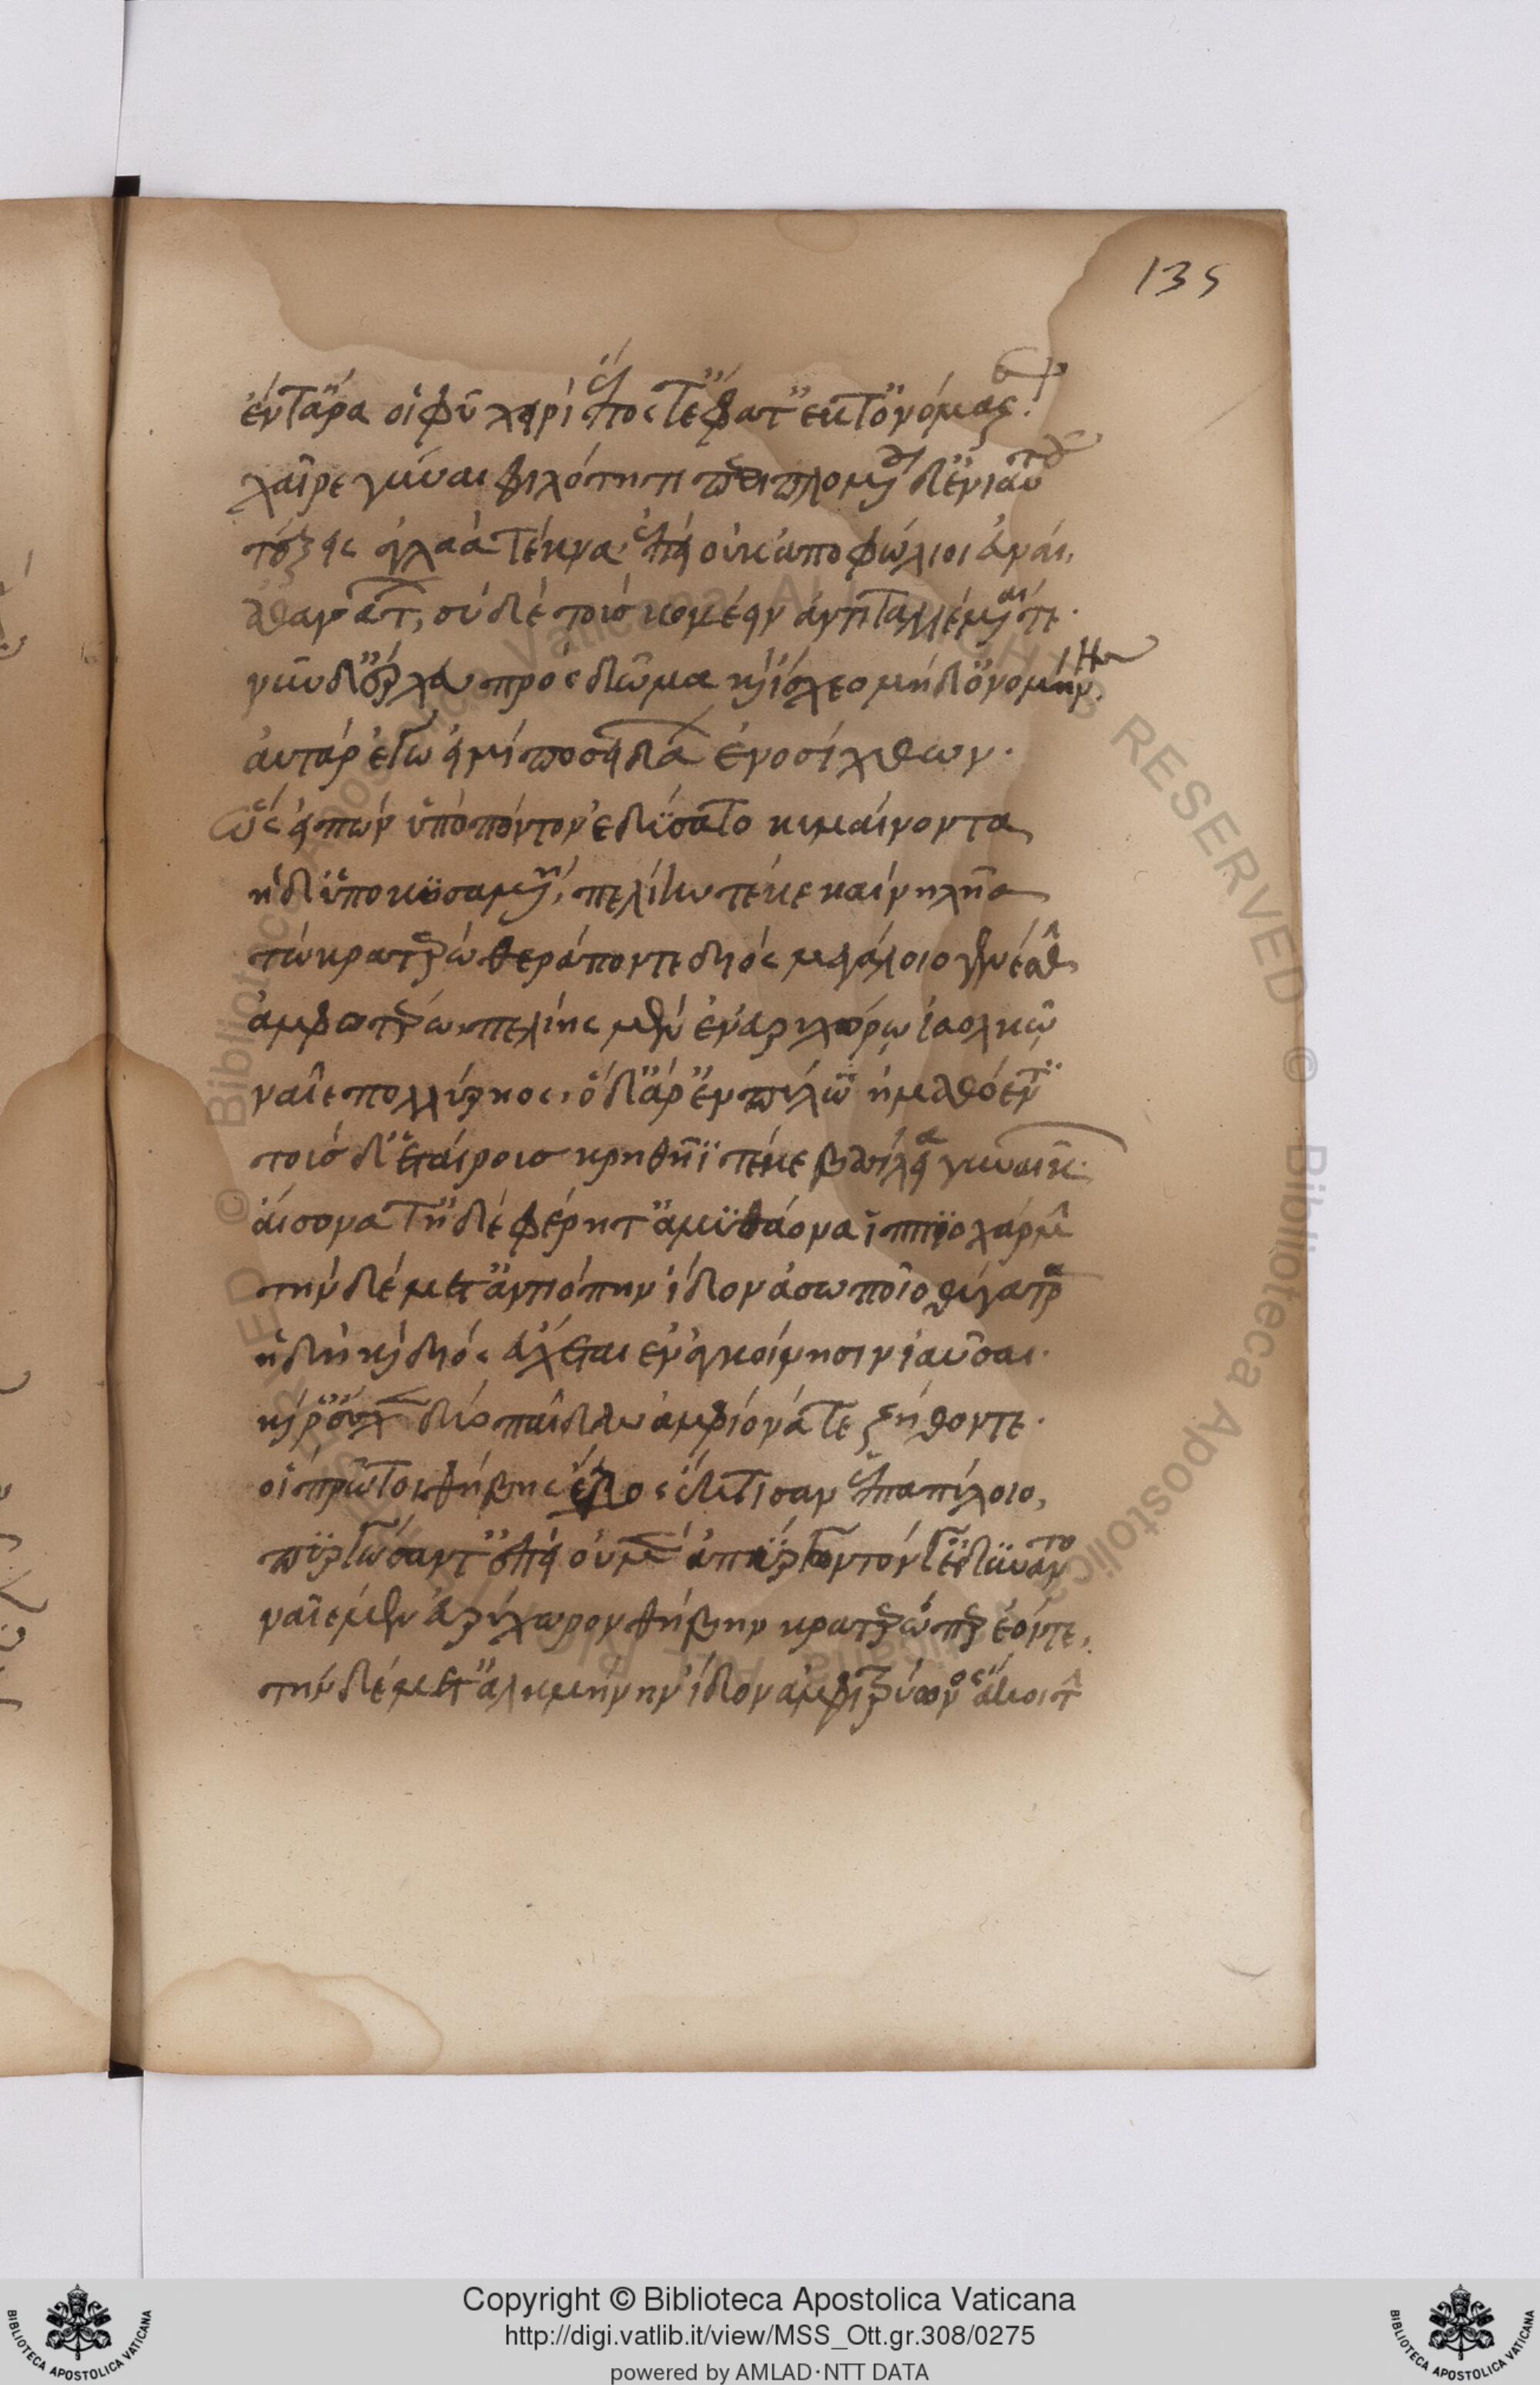 ἔν τ' ἄρα οἱ φῦ χειρὶ ἔπος τ' ἔφατ' ἔκ τ' ὀνόμαζε.
χαῖρε γύναι φιλότητι περιπλομένου δ' ἐνιαυτοῦ
τέξεις ἀγλαὰ τέκνα· ἐπεὶ οὐκ ἀποφώλιοι εὐναὶ,
ἀθανάτων, σὺ δὲ τοὺς κομέειν ἀτιταλλέμεναί τε·
νῦν δ' ἔρχευ πρὸς δῶμα καὶ ἴσχεο μηδ' ὀνομήνῃς.
αὐτὰρ ἐγὼ εἰμὶ ποσειδάων ἐνοσίχθων.
ὣς εἰπὼν ὑπὸ πόντον ἐδύσατο κυμαίνοντα
ἡ δ' ὑποκυσαμένη, πελίην τέκε καὶ νηλῆα
τὼ κρατερὼ θεράποντε διὸς μεγάλοιο γενέσθην
ἀμφοτέρω, πελίης μὲν ἐν εὐρυχόρω ἰαολκῶ
ναῖε πολλύρηνος, ὁ δ' ἄρ' ἐν πύλω ἠμαθόεντι
τοὺς δ' ἑταίρους κρηθῆϊ τέκε βασίλεια γυναικῶν.
αἴσονα τ' ἠδὲ φέρητ' ἀμυθάονα ἱππιοχάρμην
τὴν δὲ μετ' ἀντιόπην ἴδον ἀσωποῖο θύγατρα
ἣ δὴ καὶ διὸς εὔχεται ἐν ἀγκοίνησιν ἰαῦσαι.
καί ρ' ἔτεκεν δύο παῖδ' ἀμφίονά τε ζῆθόν τε.
οἳ πρῶτοι θήβης ἕδος ἔκτισαν ἑπταπύλοιο,
πύργωσάντ' ἐπεὶ οὐ μὲν ἀπύργωτόν γ' ἐδύναντο
ναιέμεν εὐρύχωρον θήβην κρατερώ περ ἐόντε,
τὴν δὲ μετ' ἀλκμήνην ἴδον ἀμφιτρύωνος ἄκοιτιν
135
Copyright © Biblioteca Apostolica Vaticana
http://digi.vatlib.it/view/MSS_Ott.gr.308/0275
powered by AMLAD·NTT DATA